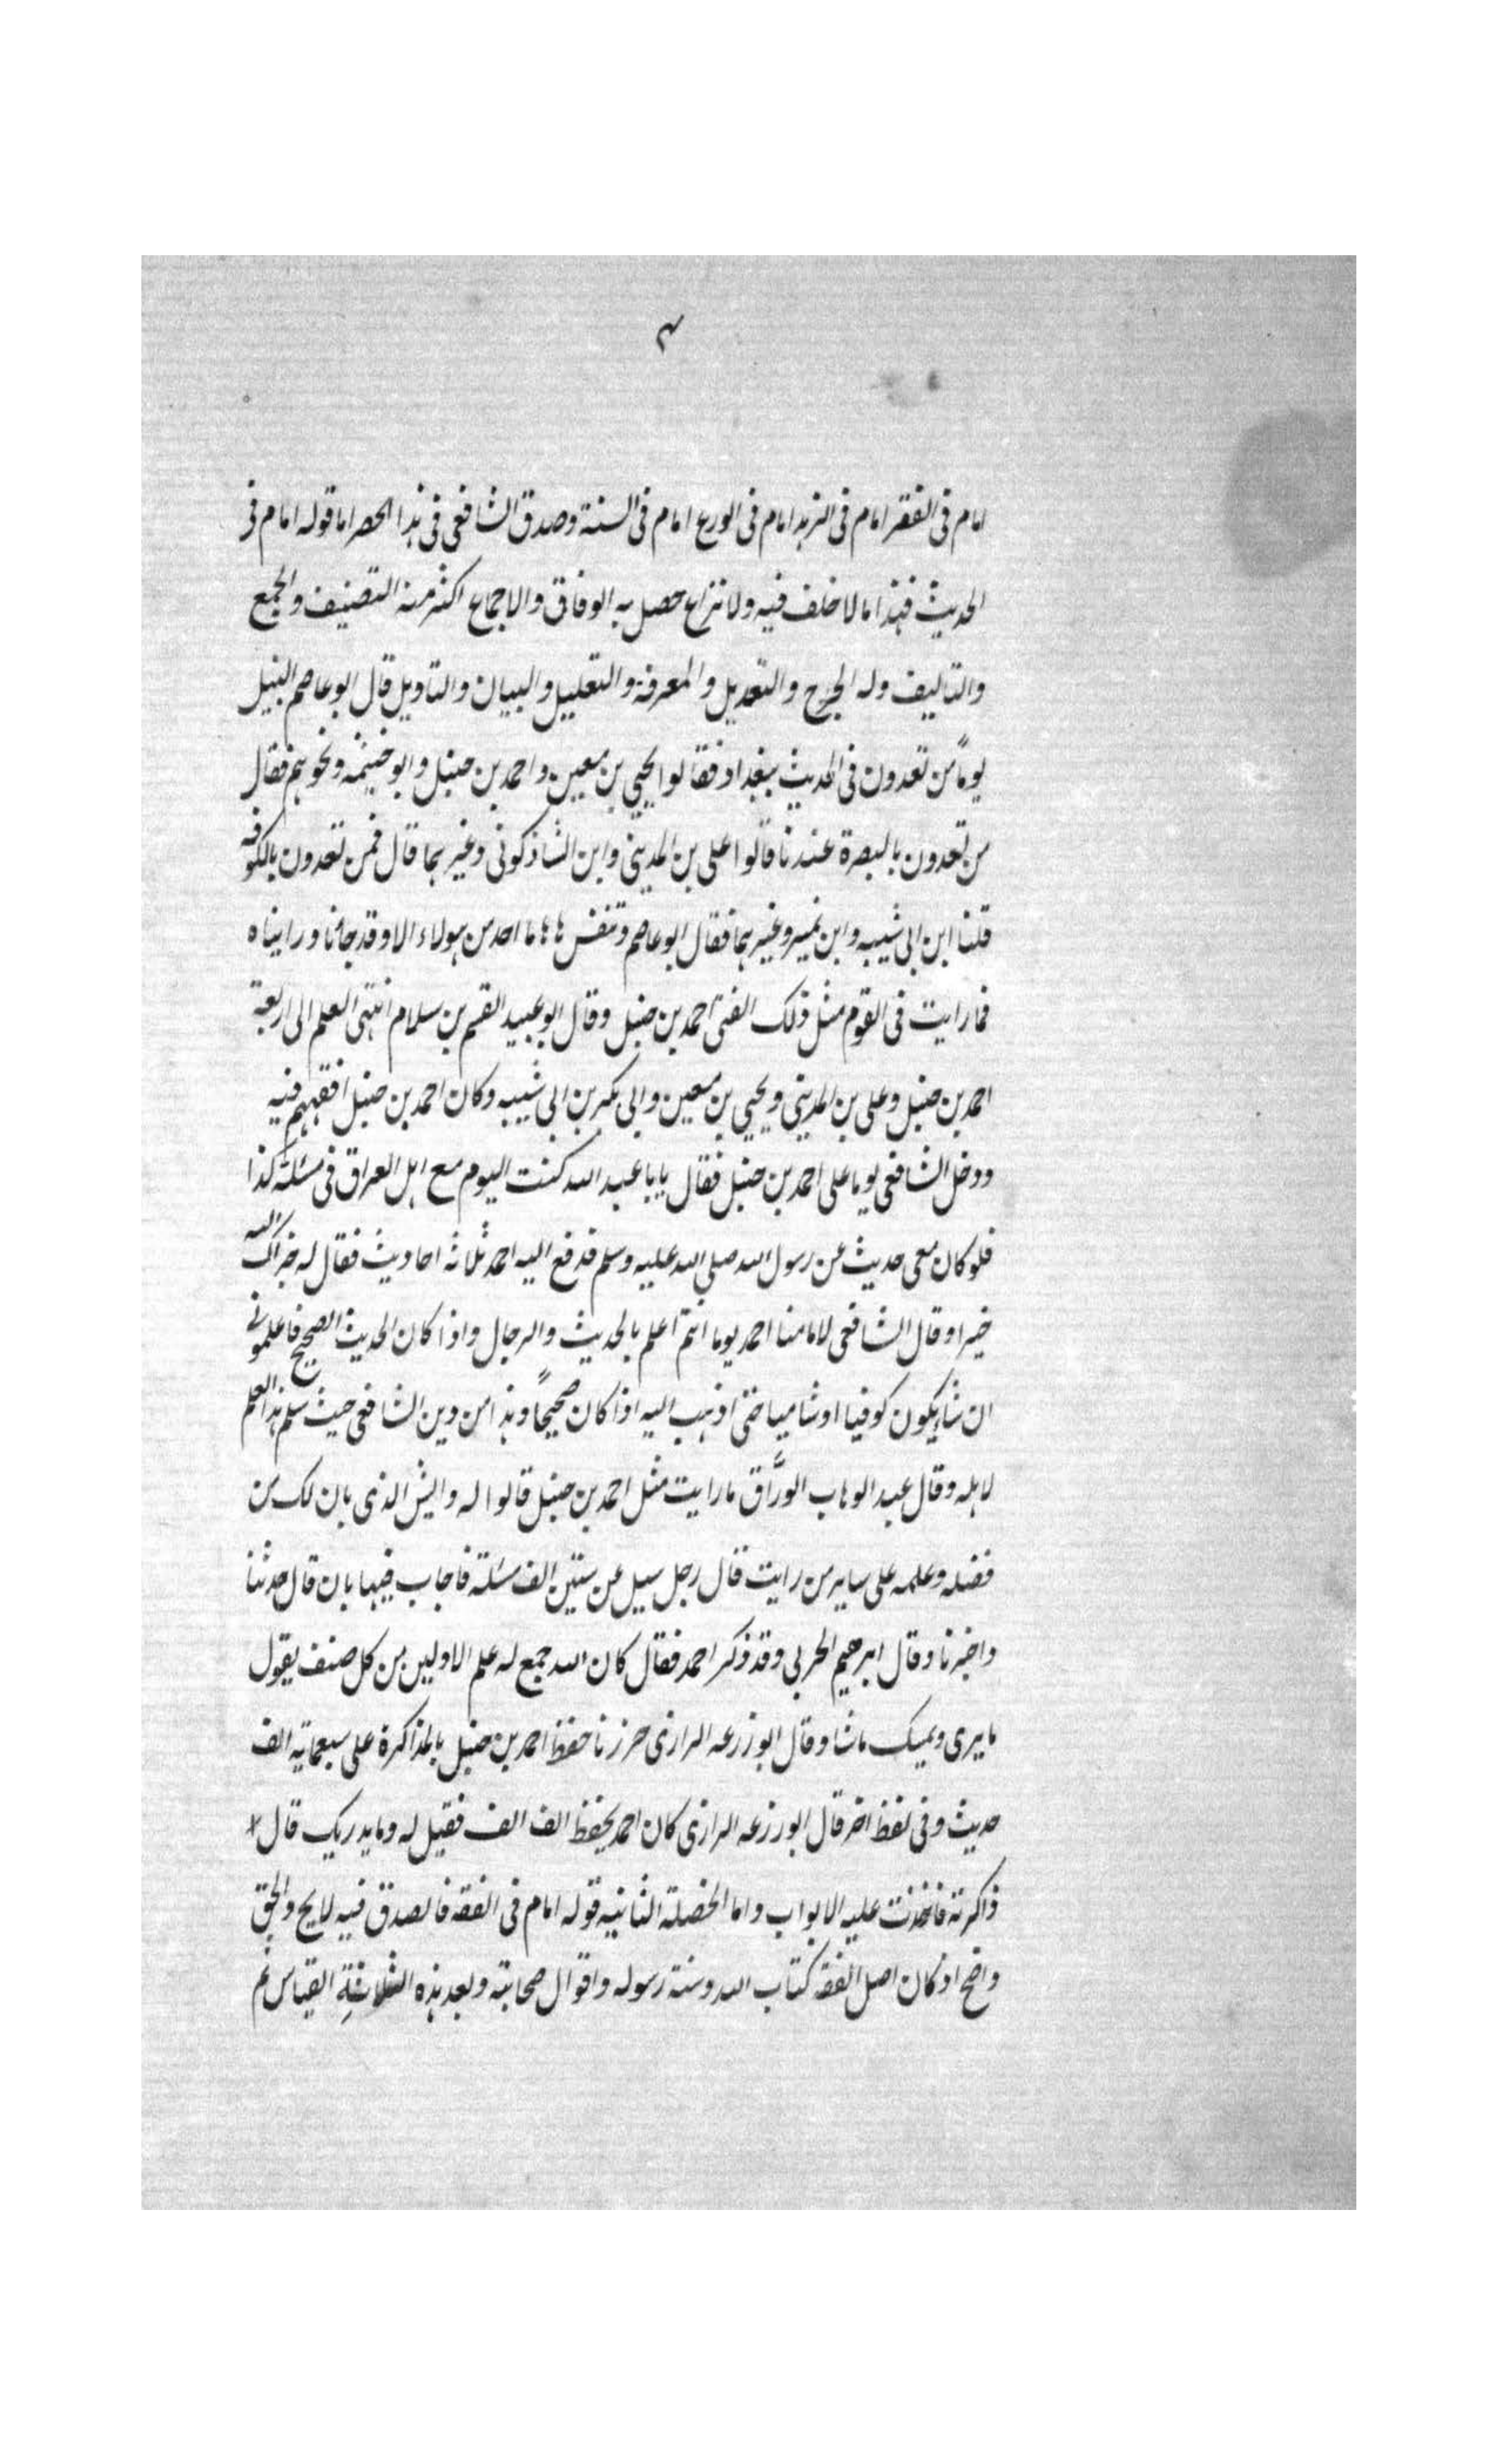 ۳
امام فى الفقر امام فى الزهد امام فى الورع امام فى السنة وصدق الشافعى فى هذا الحصر اما قوله امام فى
الحديث فهذا ما لا خلف فيه ولا نزاع حصل به الوفاق والاجماع اكثر منه التصنيف والجمع
والتاليف وله الجرح والتعديل والمعرفة والتعليل والبيان والتاويل قال ابو عاصم النبيل
يوماً من تعدون فى الحديث ببغداد فقالوا يحيى بن معين واحمد بن حنبل وابو خيثمه ونحوهم فقال
من تعدون بالبصرة عندنا قالوا على بن المدينى وابن الشاذكونى وغيرهما قال فمن تعدون بالكوفه
قلنا ابن ابى شيبه وابن نمير وغيرهما فقال ابو عاصم وتنفس هاها ما احد من هولاء الا وقد جائنا ورايناه
فما رايت فى القوم مثل ذلك الفتى احمد بن حنبل وقال ابو عبيد القسم بن سلام انتهى العلم الى اربعة
احمد بن حنبل وعلى بن المدينى ويحيى بن معين وابى بكر بن ابى شيبه وكان احمد بن حنبل افقههم فيه
ودخل الشافعى يوما على احمد بن حنبل فقال يابا عبد الله كنت اليوم مع اهل العراق فى مسئلة كذا
فلو كان معى حديث عن رسول الله صلى الله عليه وسلم فدفع اليه احمد ثلاثه احاديث فقال له جزاك الله
خيرا وقال الشافعى لامامنا احمد يوما انتم اعلم بالحديث والرجال واذا كان الحديث الصحيح فاعلمونى
ان شا يكون كوفيا او شاميا حتى اذهب اليه اذا كان صحيحاً وهذا من دين الشافعى حيث سلم هذا العلم
لاهله وقال عبد الوهاب الورَّاق ما رايت مثل احمد بن حنبل قالوا له وايش الذى بان لك من
فضله وعلمه على ساير من رايت قال رجل سيل عن ستين الف مسئلة فاجاب فيها بان قال حدثنا
واخبرنا وقال ابرهيم الحربى وقد ذكر احمد فقال كان الله جمع له علم الاولين من كل صنف يقول
ما يرى ويمسك ماشا وقال ابو زرعه الرازى حرزنا حفظ احمد بن حنبل بالمذاكرة على سبعمايه الف
حديث وفى لفظ اخر قال ابو زرعه الرازى كان احمد يحفظ الف الف فقيل له وما يدريك قال
ذاكرته فاخذت عليه الابواب واما الخصلة الثانيه قوله امام فى الفقه فالصدق فيه لايح والحق
واضح اذ كان اصل الفقه كتاب الله وسنة رسوله واقوال صحابته وبعد هذه الثلاثة القياس ثم